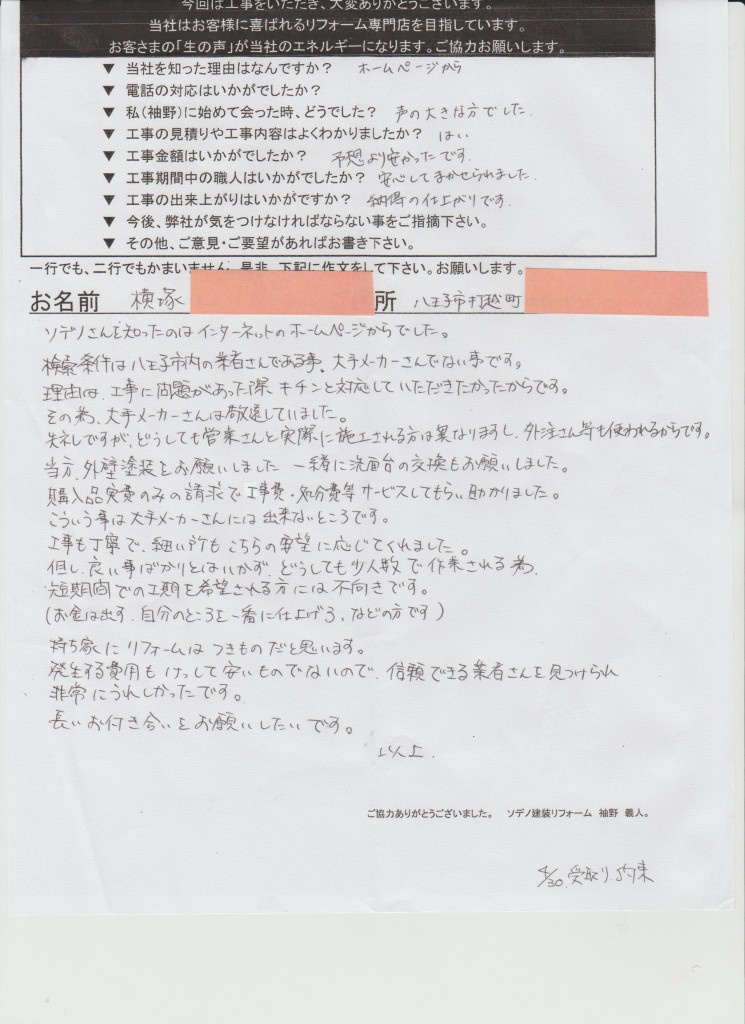 今回は工事をいただき、大変ありがとうございます。
当社はお客様に喜ばれるリフォーム専門店を目指しています。
お客さまの「生の声」が当社のエネルギーになります。ご協力お願いします。
▼ 当社を知った理由はなんですか? ホームページから
▼ 電話の対応はいかがでしたか?
▼ 私(袖野)に始めて会った時、どうでした? 声の大きな方でした.
▼ 工事の見積りや工事内容はよくわかりましたか? はい
▼ 工事金額はいかがでしたか? 予想より安かったです.
▼ 工事期間中の職人はいかがでしたか? 安心してまかせられました.
▼ 工事の出来上がりはいかがですか? 納得の仕上がりです.
▼ 今後、弊社が気をつけなければならない事をご指摘下さい。
▼ その他、ご意見・ご要望があればお書き下さい。
一行でも、二行でもかまいません、是非、下記に作文をして下さい。お願いします。
お名前 横塚 所 八王子市打越町
ソデノさんを知ったのはインターネットのホームページからでした。
検索条件は八王子市内の業者さんである事、大手メーカーさんでない事です。
理由は、工事に問題があった際、キチンと対応していただきたかったからです。
その為、大手メーカーさんは敬遠していました。
失礼ですが、どうしても営業さんと実際に施工される方は異なりますし、外注さん等も使われるからです。
当方、外壁塗装をお願いしました 一緒に洗面台の交換もお願いしました。
購入品実費のみの請求で工事費・処分費等サービスしてもらい助かりました。
こういう事は大手メーカーさんには出来ないところです。
工事も丁寧で、細い所もこちらの要望に応じてくれました。
但し、良い事ばかりとはいかず、どうしても少人数で作業される為、
短期間での工期を希望される方には不向きです。
(お金は出す、自分のところを一番に仕上げろ、などの方です)
持ち家にリフォームはつきものだと思います。
発生する費用もけっして安いものでないので、信頼できる業者さんを見つけられ
非常にうれしかったです。
長いお付き合いをお願いしたいです。
以上.
ご協力ありがとうございました。 ソデノ建装リフォーム 袖野 義人。
4/30.受取り 約束